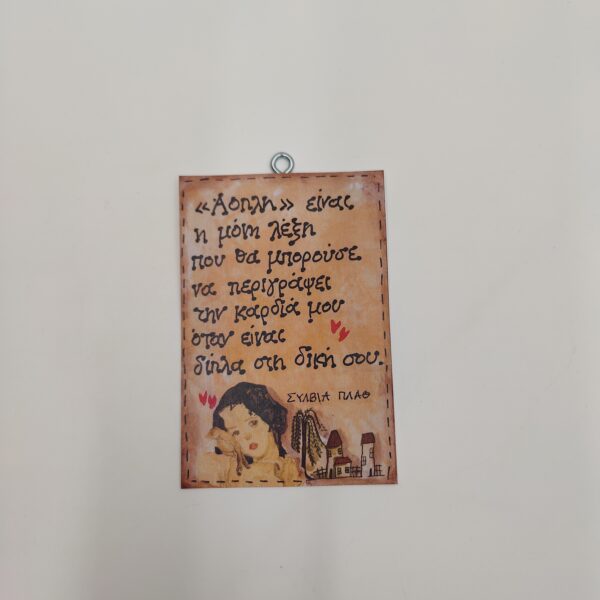 «Άοπλη» είναι
η μόνη λέξη
που θα μπορούσε
να περιγράψει
την καρδιά μου
όταν είναι
δίπλα στη δική σου.
ΣΥΛΒΙΑ ΠΛΑΘ